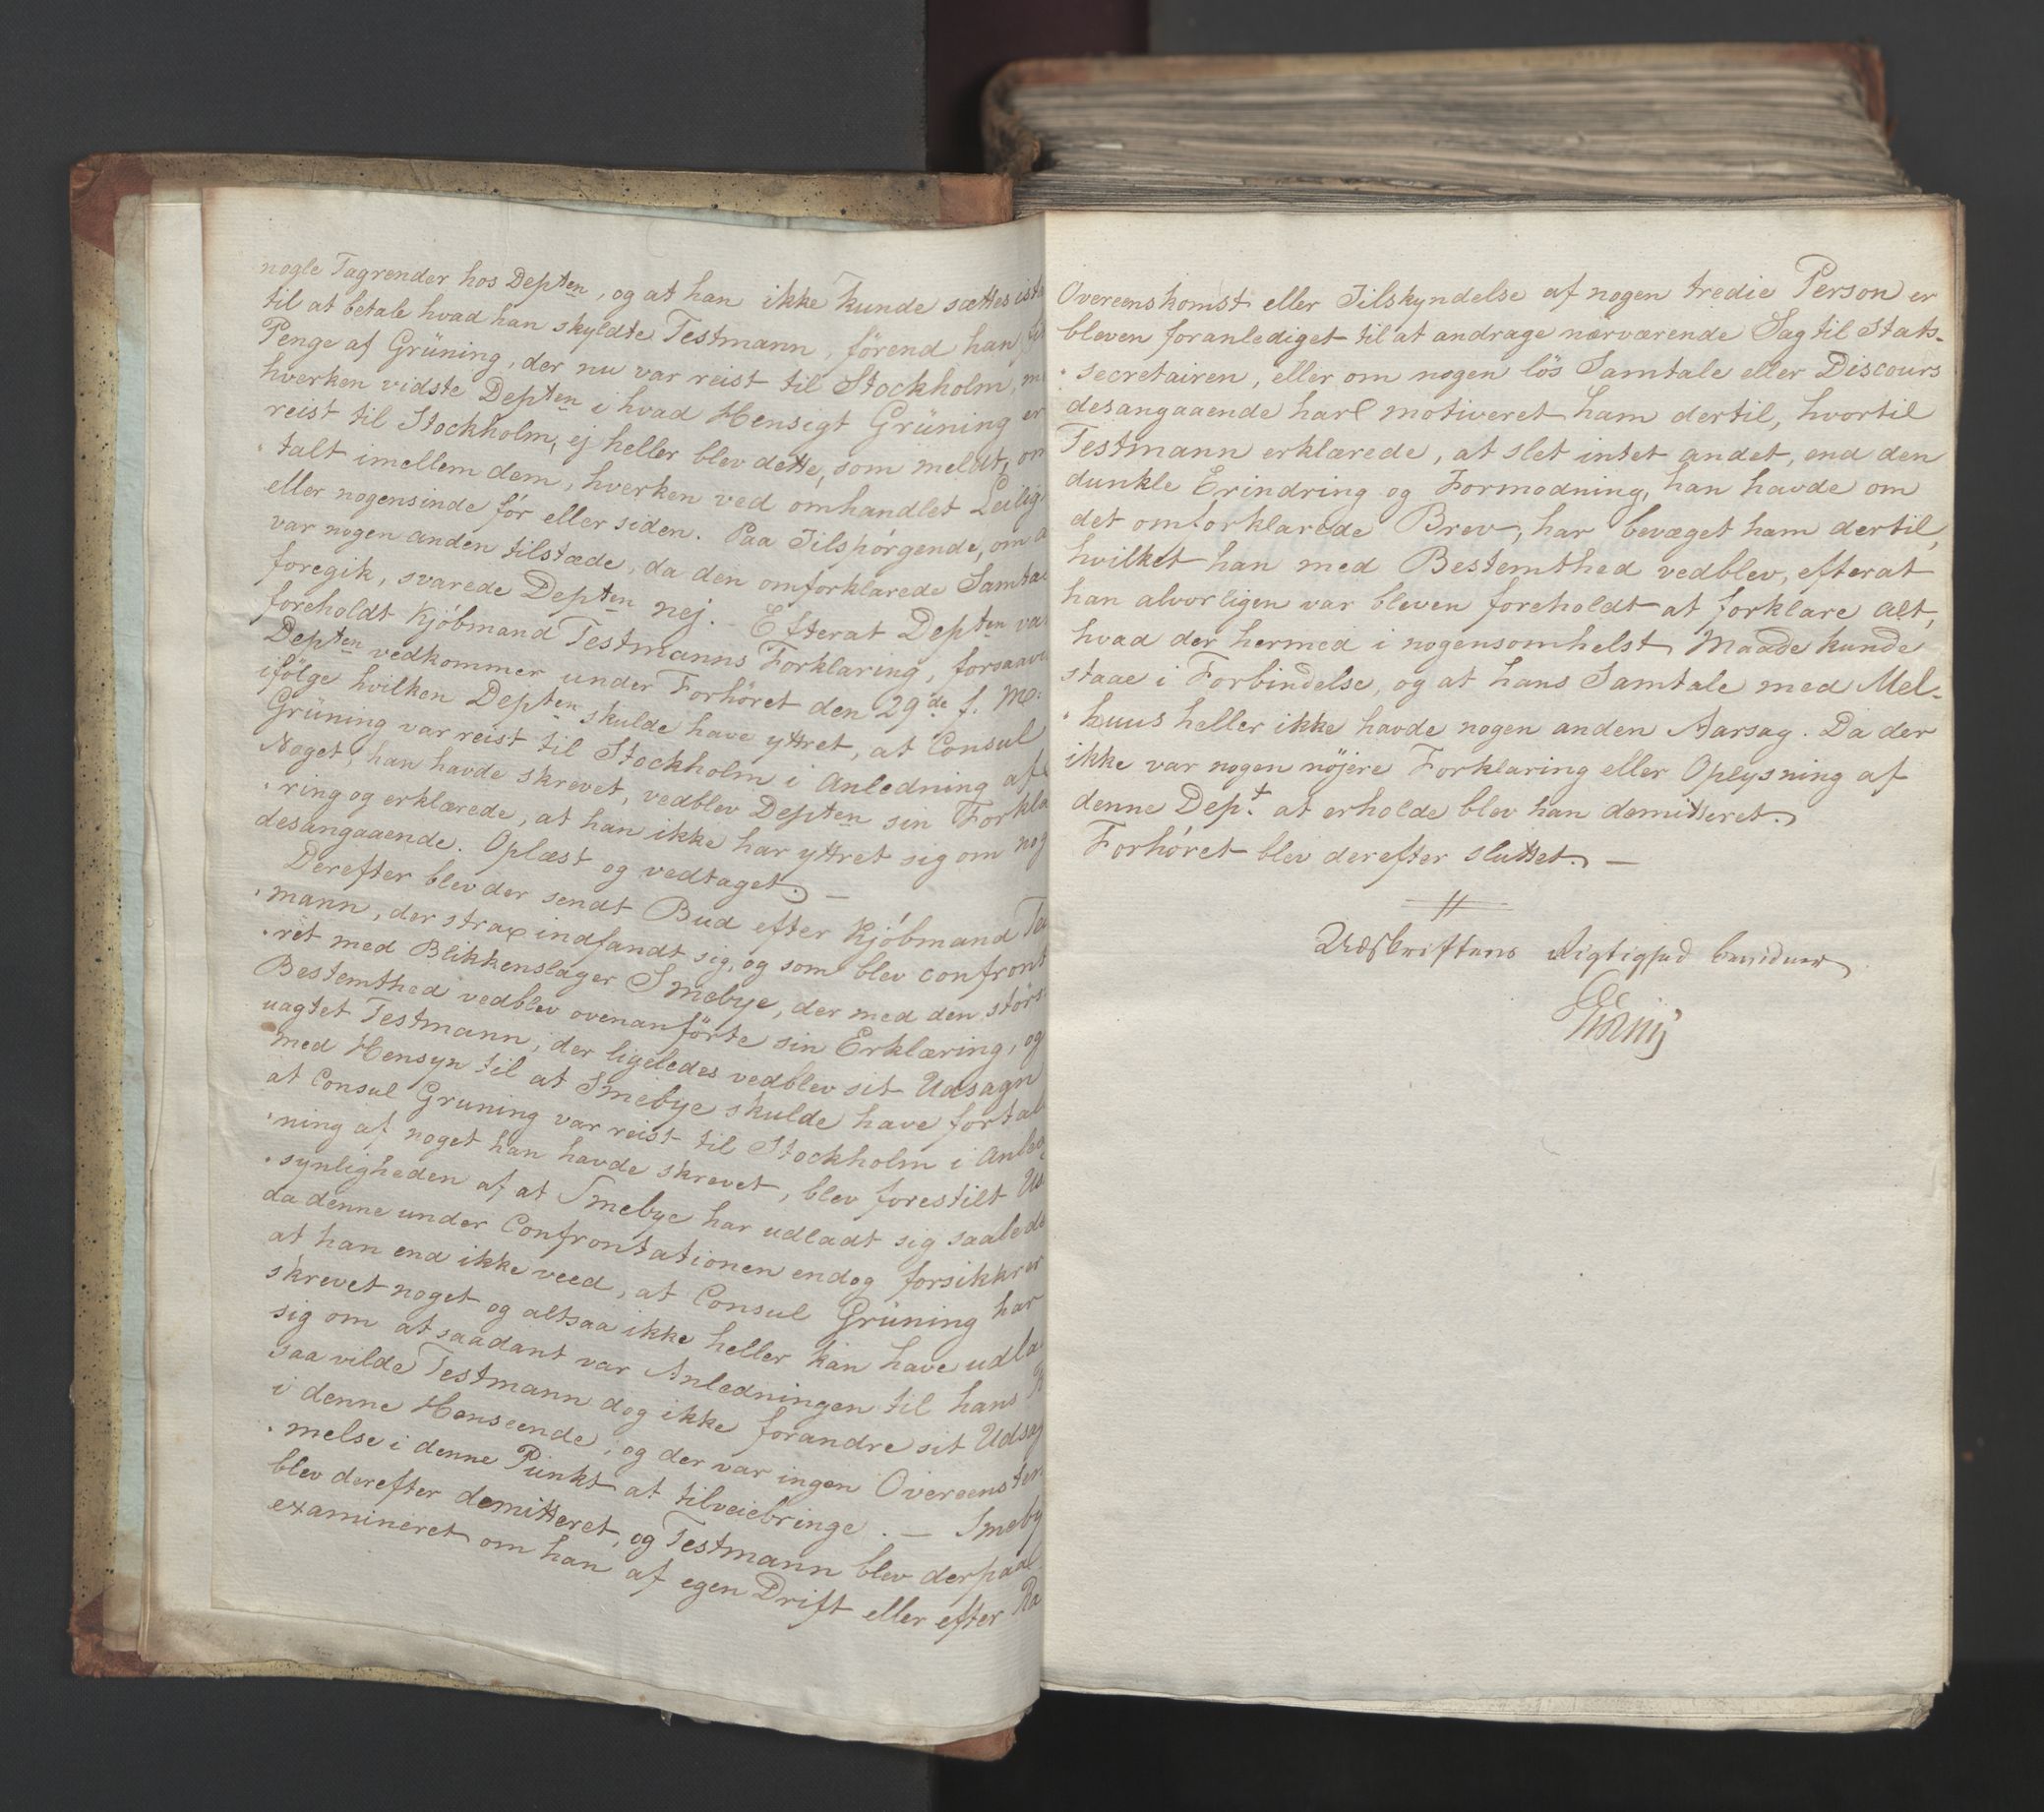 nogle Tagrender hos Depten, og at han ikke kunde sættes ista
til at betale hvad han skyldte Testmann, förend han
Penge af Grüning, der nu var reist til Stockholm,
hverken vidste Depten i hvad Hensigt Grüning er
reist til Stockholm, ej heller blev dette, som meldt, om
talt imellem dem, hverken ved omhandlet Leilig
eller nogensinde för eller siden. Paa Tilspörgende, om
var nogen anden tilstæde, da den omforklarede Samta
foregik, svarede Depten nej. Efterat Depten var
foreholdt Kjöbmand Testmanns Forklaring, forsaavi
Depten vedkommer under Forhöret den 29de f. M:
ifölge hvilken Depten skulde have yttret, at Consul
Grüning var reist til Stockholm i Anledning af
Noget, han havde skrevet, vedblev Depten sin Forkla
ring og erklærede, at han ikke har yttret sig om nog
desangaaende. Oplæst og vedtaget. —
Derefter blev der sendt Bud efter Kjöbmand Te
mann, der strax indfandt sig, og som blev confront
ret med Blikkenslager Smebye, der med den störs
Bestemthed vedblev ovenanförte sin Erklæring, og
uagtet Testmann, der ligeledes vedblev sit Udsagn
med Hensyn til at Smebye skulde have fortal
at Consul Gruning var reist til Stockholm i Anled
ning af noget han havde skrevet, blev forestilt Us
synligheden af at Smebye har udladt sig saalede
da denne under Confrontationen endog forsikkrer
at han end ikke veed, at Consul Grüning har
skrevet noget og altsaa ikke heller kan have udla
sig om at saadant var Anledningen til hans R
saa vilde Testmann dog ikke forandre sit Udsag
i denne Henseende, og der var ingen Overeenstem
melse i denne Punkt at tilveiebringe. — Smeby
blev derefter demitteret, og Testmann blev derpaa
examineret om han af egen Drift eller efter Ra
Overeenskomst eller Tilskyndelse af nogen tredie Person er
bleven foranlediget til at andrage nærværende Sag til Stats-
secretairen, eller om nogen lös Samtale eller Discours
desangaaende har motiveret ham dertil, hvortil
Testmann erklærede, at slet intet andet, end den
dunkle Erindring og Formodning, han havde om
det omforklarede Brev, har bevæget ham dertil,
hvilket han med Bestemthed vedblev, efterat
han alvorligen var bleven foreholdt at forklare alt,
hvad der hermed i nogensomhelst Maade kunde
staae i Forbindelse, og at hans Samtale med Mel-
huus heller ikke havde nogen anden Aarsag. Da der
ikke var nogen nöjere Forklaring eller Oplysning af
denne Dept. at erholde blev han demitteret.
Forhöret blev derefter sluttet. —
Udskriftens Rigtighed bevidner